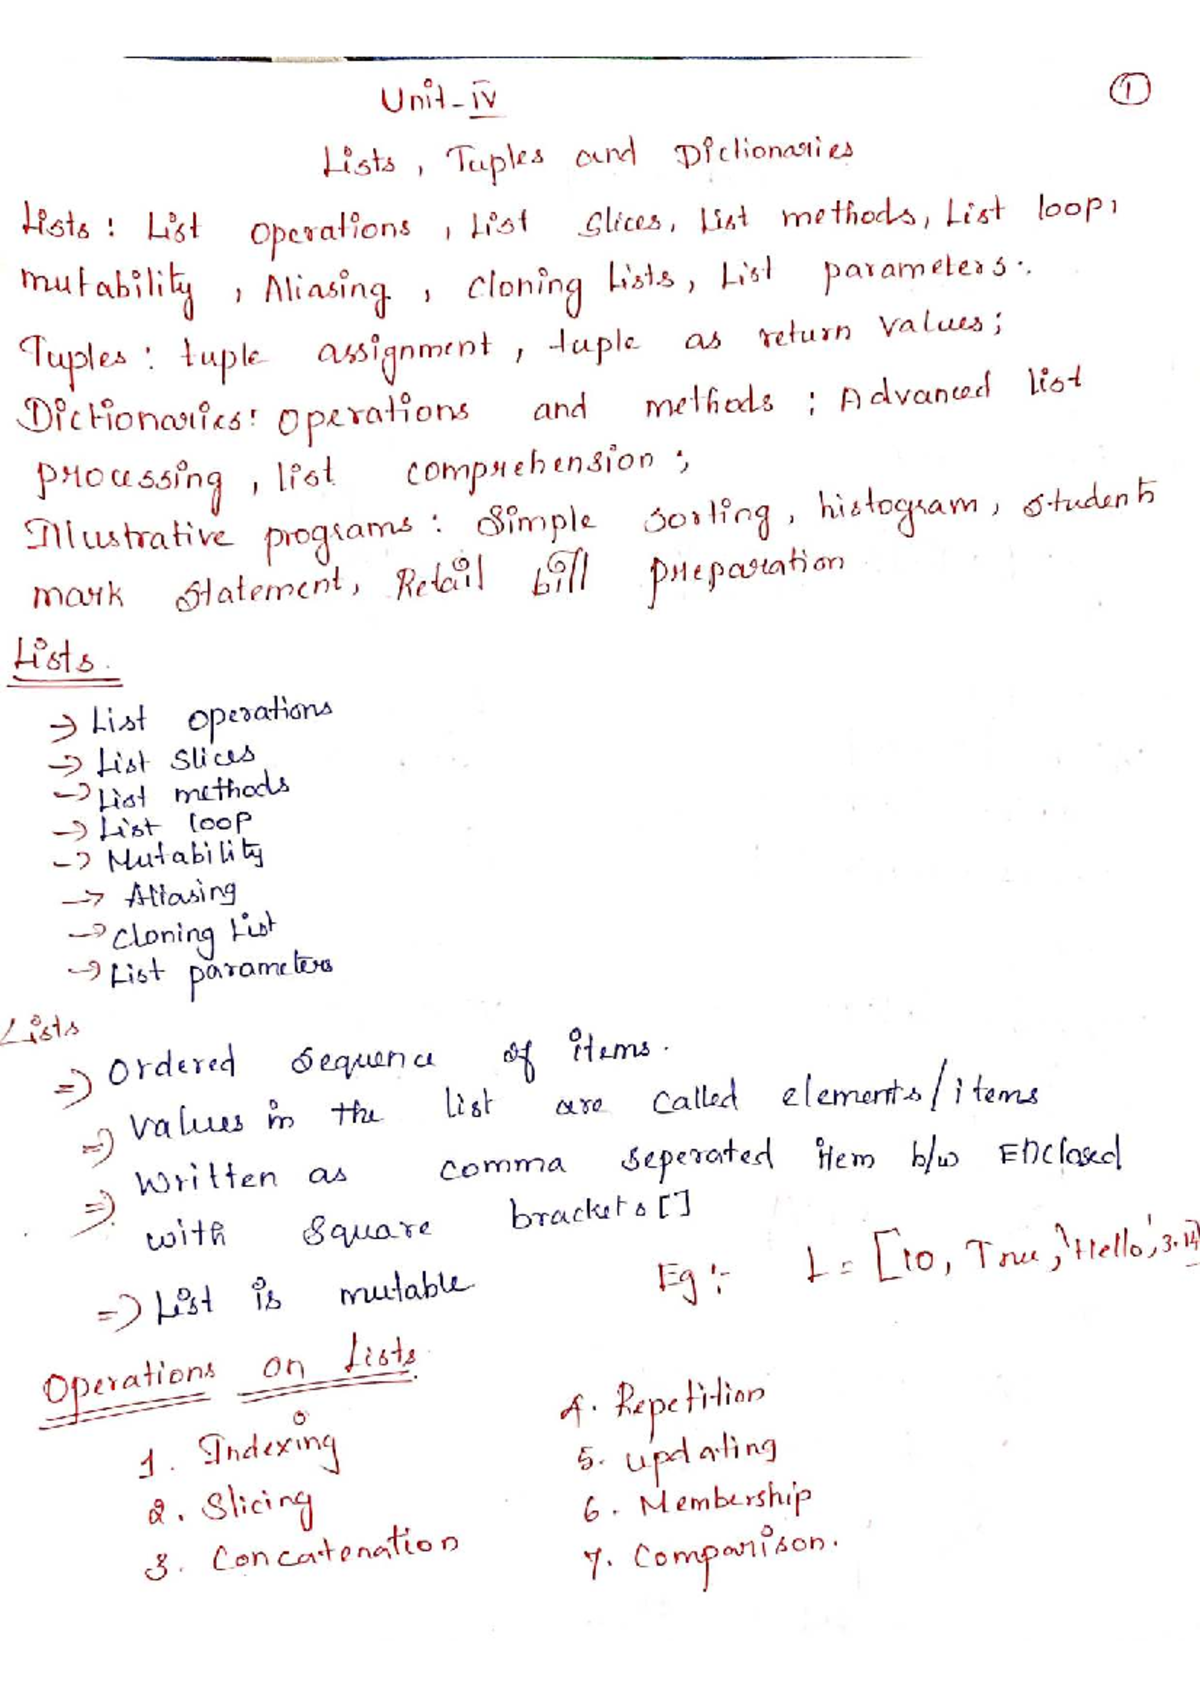 Unit-iv
1
Lists, Tuples and Dictionaries
Lists: List operations, List Slices, List methods, List loop,
mutability, Aliasing, cloning Lists, List parameters.
Tuples: tuple assignment, tuple as return values;
Dictionaries: Operations and methods; Advanced list
processing, list comprehension;
Illustrative programs: Simple sorting, histogram, Students
mark Statement, Retail bill preparation
Lists.
→ List operations
→ List Slices
→ List methods
→ List loop
→ Mutability
→ Aliasing
→ Cloning List
→ List parameters
Lists
⇒ Ordered Sequence of items.
⇒ values in the list are called elements/items
⇒ Written as comma seperated item b/w Enclosed
with Square brackets []
⇒ List is mutable
Eg:- L = [10, True, 'Hello', 3.14]
Operations on Lists
1. Indexing
2. Slicing
3. Concatenation
4. Repetition
5. updating
6. Membership
7. Comparison.